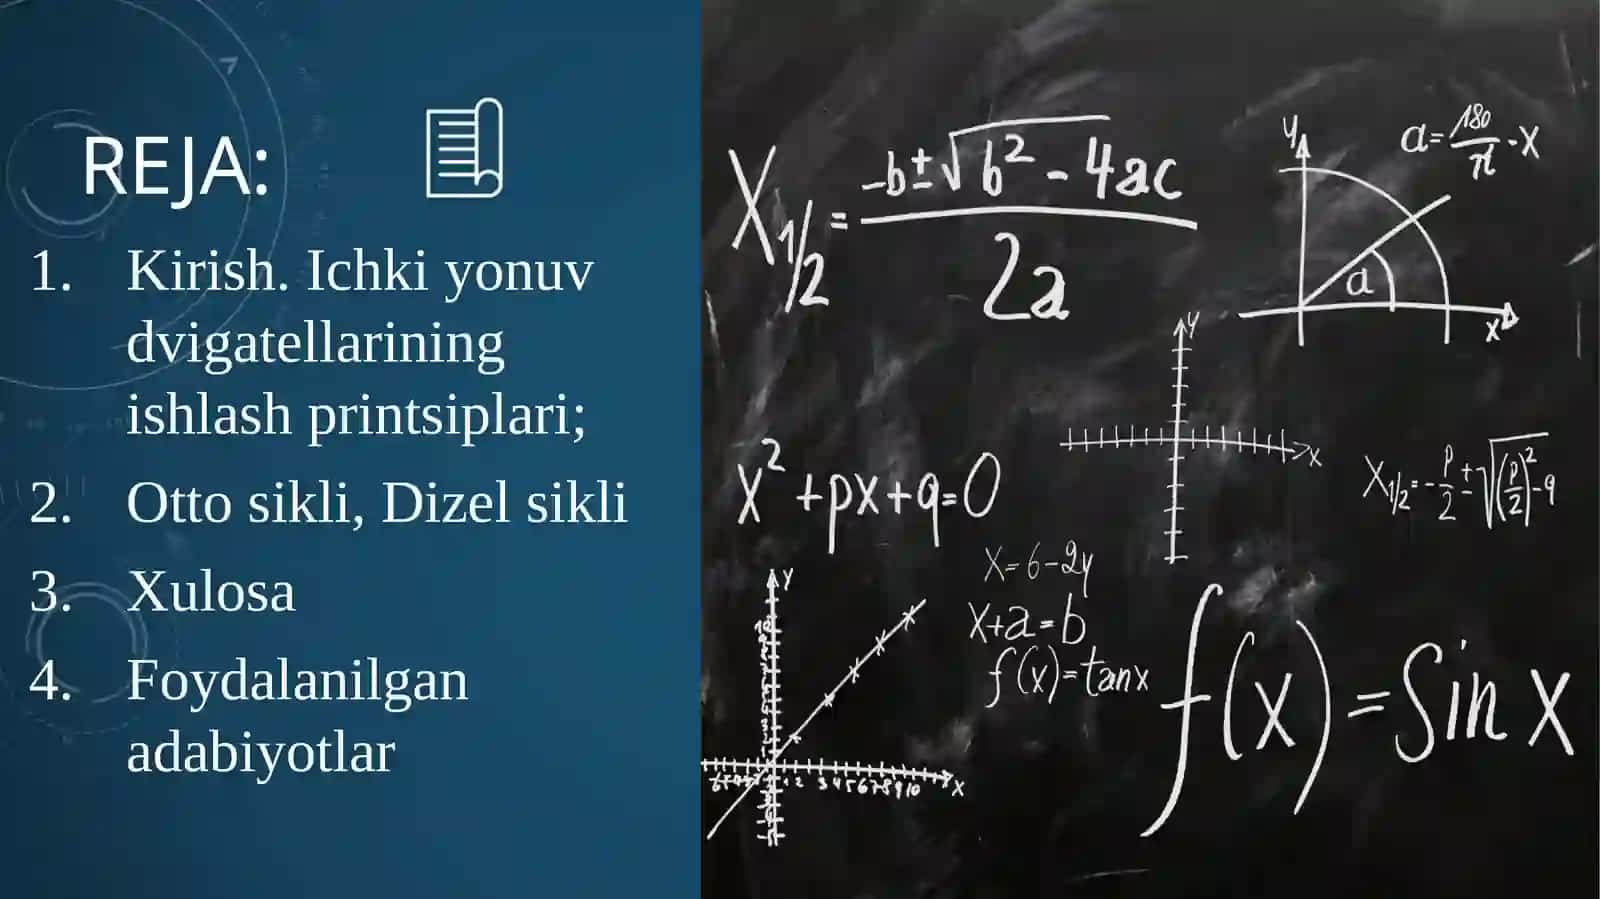 REJA:
1. Kirish. Ichki yonuv
dvigatellarining
ishlash printsiplari;
2. Otto sikli, Dizel sikli
3. Xulosa
4. Foydalanilgan
adabiyotlar
X1/2 = -b±√b² - 4ac / 2a
y
a = 180/π · x
a
x
y
x
x² + px + q = 0
X1/2 = - p/2 ± √(p/2)² - q
x = 6 - 2y
x + a = b
f(x) = tanx
f(x) = Sin x
y
x